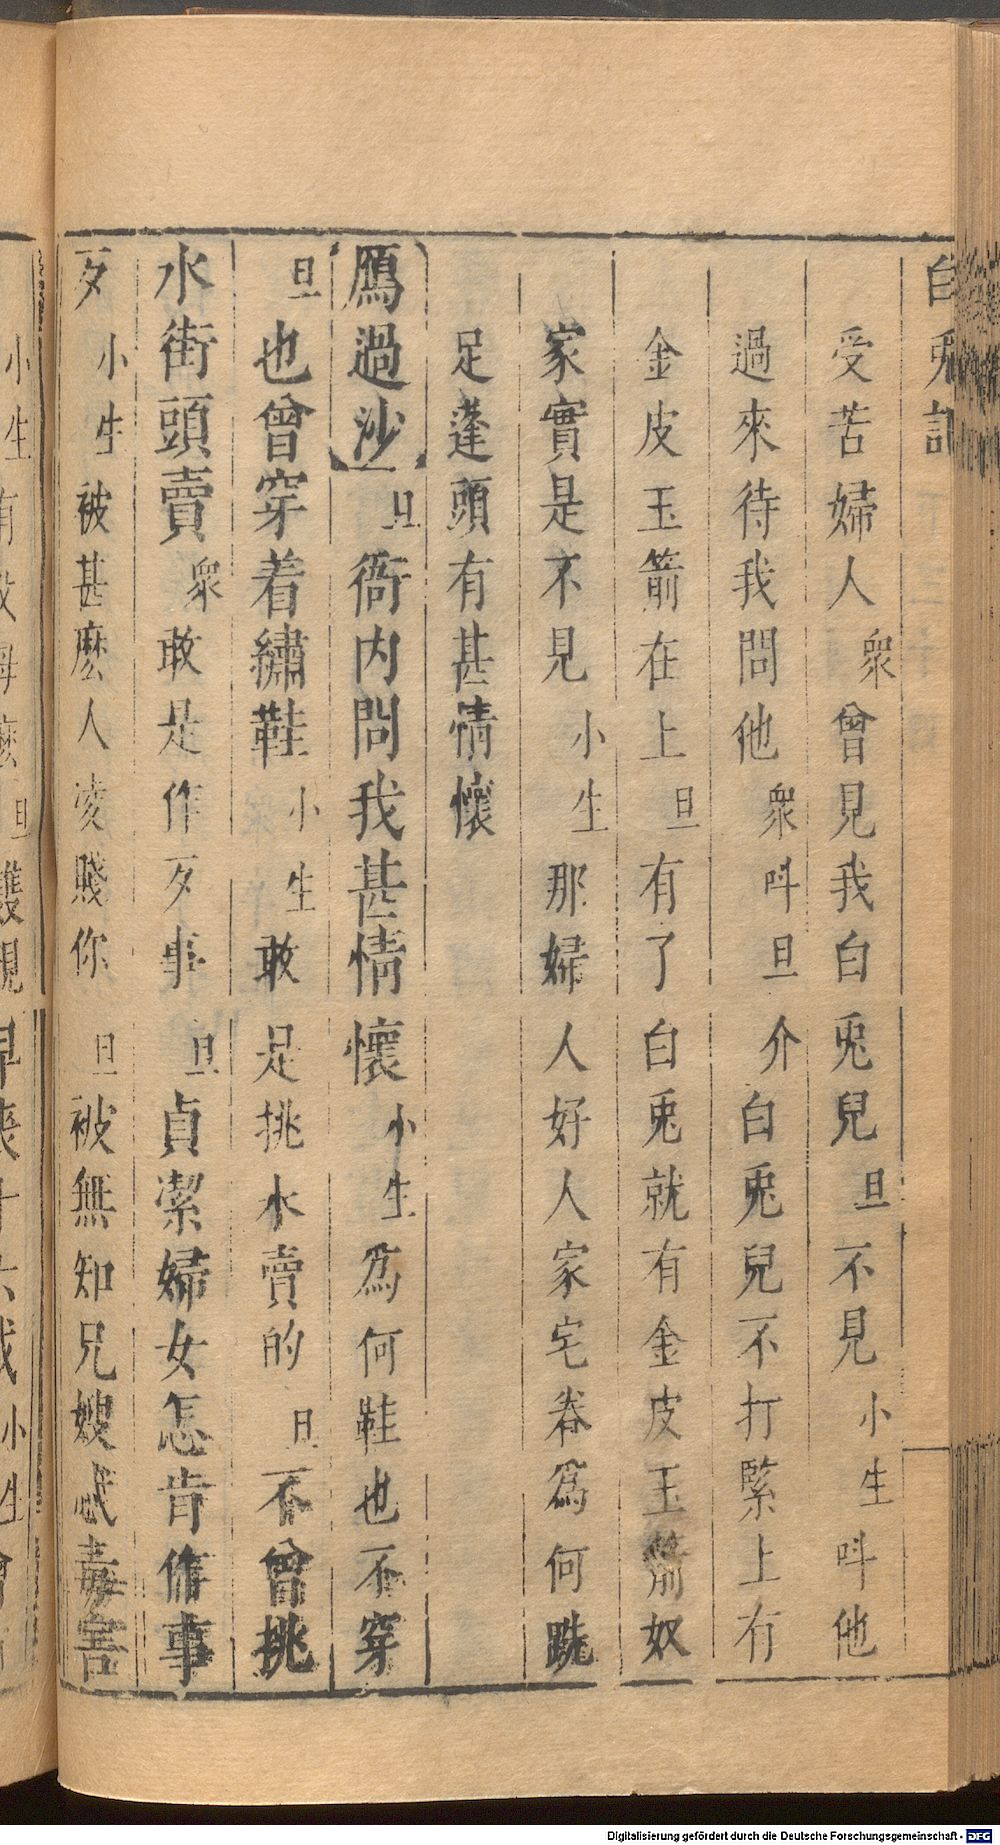 白兎記
受苦婦人衆曾見我白兎兒旦不見小生呌他
過來待我問他衆呌旦介白兎兒不打緊上有
金皮玉箭在上旦有了白兎就有金皮玉箭奴
家實是不見小生那婦人好人家宅眷爲何跣
足蓬頭有甚情懷
鴈過沙旦衙内問我甚情懷小生爲何鞋也不穿
旦也曾穿着繡鞋小生敢是挑水賣的旦不曾挑
水街頭賣衆敢是作歹事旦貞潔婦女怎肯作事
歹小生被甚麽人凌賤你旦被無知兄嫂忒毒害
Digitalisierung gefördert durch die Deutsche Forschungsgemeinschaft - DFG